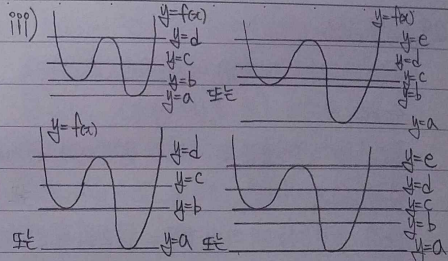 iii)
y=f(x)
y=d
y=c
y=b
y=a
또는
y=f(x)
y=e
y=d
y=c
y=b
y=a
또는
y=f(x)
y=d
y=c
y=b
y=a
또는
y=e
y=d
y=c
y=b
y=a